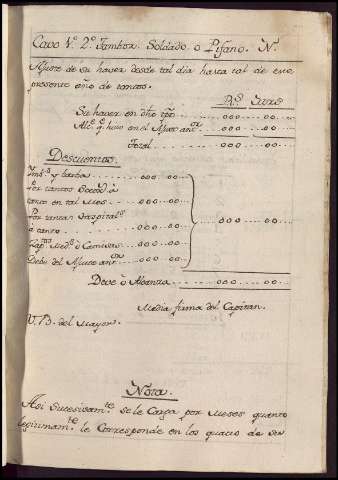 Cavo 1.º 2.º Tambor. Soldado o Pifano. N.
Ajuste de su haver desde tal dia hasta tal de este
presente año de tantos.
Su haver en dho tpo. ... 000 .. 00
Alc.e q.e hizo en el Ajuste ant.or ... 000 .. 00
Total ... 000 .. 00
Descuentos
y barba ... 000 .. 00
Por tantos Socorr.s à
tanto en tal mes ... 000 .. 00
Por tantas Hospital.s
a tanto ... 000 .. 00
Zap.tos Med.s ò Camisas ... 000 .. 00
Debe del Ajuste ant.or ... 000 .. 00
000 .. 00
Deve ò Alcanza ... 000 .. 00
Media firma del Capitan.
V.º B.º del Mayor.
Nota.
Asi Sucesivam.te se le Carga por meses quanto
legitimam.te le Corresponde en los quatro de ser